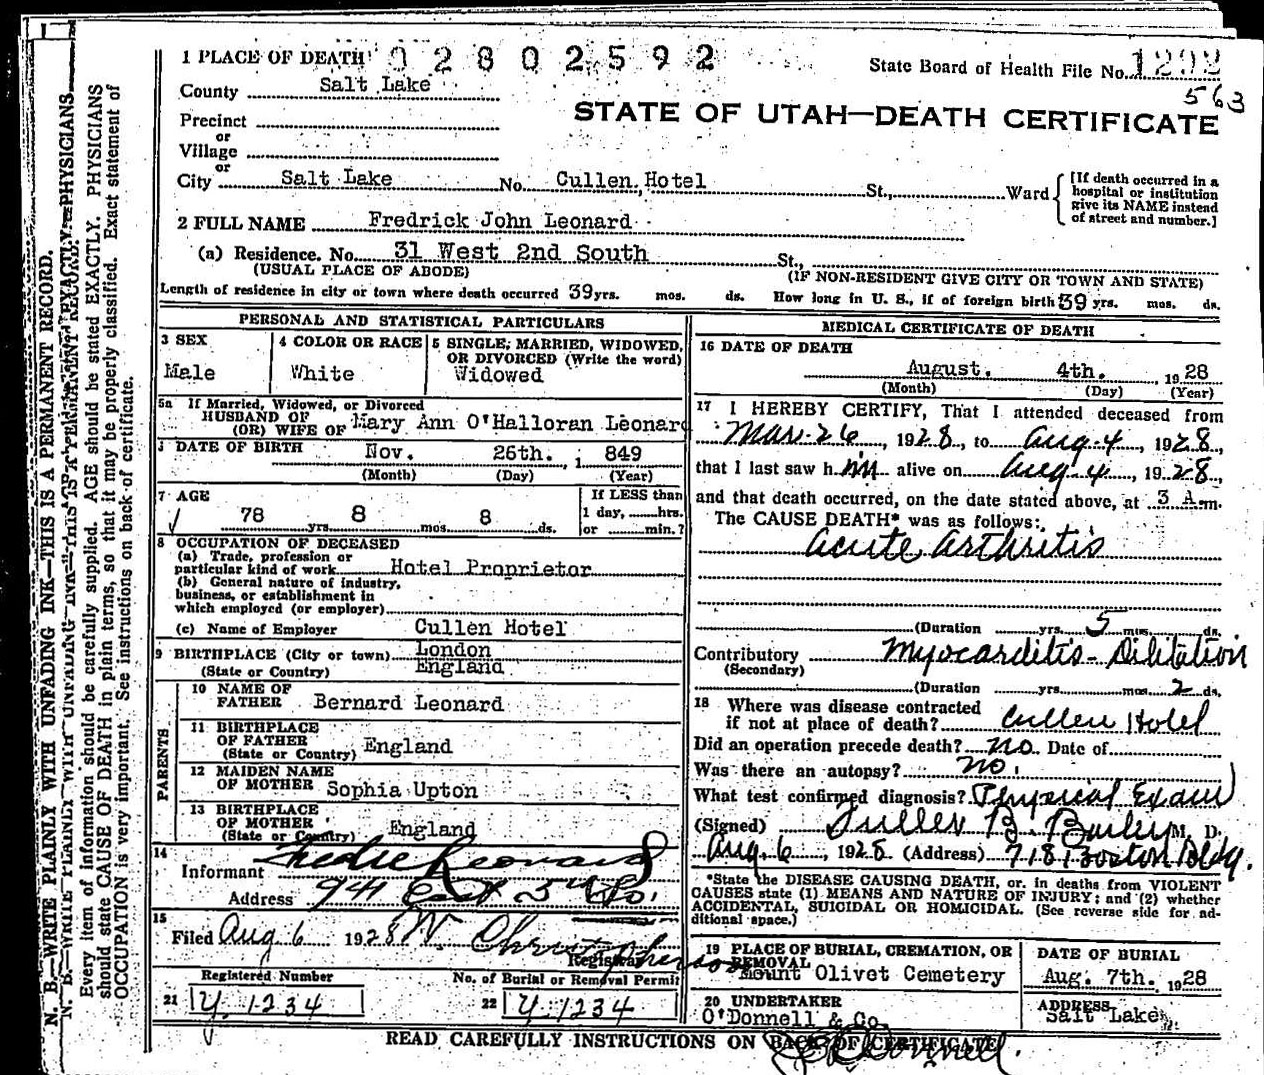 1 PLACE OF DEATH 02802592
State Board of Health File No. 1292
563
County Salt Lake
STATE OF UTAH—DEATH CERTIFICATE
Precinct
or
Village
or
City Salt Lake No. Cullen Hotel St., Ward
[If death occurred in a hospital or institution give its NAME instead of street and number.]
2 FULL NAME Fredrick John Leonard
(a) Residence. No. 31 West 2nd South St.,
(USUAL PLACE OF ABODE) (IF NON-RESIDENT GIVE CITY OR TOWN AND STATE)
Length of residence in city or town where death occurred 39 yrs. mos. ds. How long in U. S., if of foreign birth 39 yrs. mos. ds.
PERSONAL AND STATISTICAL PARTICULARS
3 SEX
Male
4 COLOR OR RACE
White
5 SINGLE, MARRIED, WIDOWED, OR DIVORCED (Write the word)
Widowed
5a If Married, Widowed, or Divorced
HUSBAND OF
(OR) WIFE OF Mary Ann O'Halloran Leonard
DATE OF BIRTH Nov. 26th. , 1 849
(Month) (Day) (Year)
7 AGE
78 yrs. 8 mos. 8 ds.
If LESS than
1 day, hrs.
or min.?
8 OCCUPATION OF DECEASED
(a) Trade, profession or
particular kind of work Hotel Proprietor
(b) General nature of industry,
business, or establishment in
which employed (or employer)
(c) Name of Employer Cullen Hotel
9 BIRTHPLACE (City or town) London
(State or Country) England
PARENTS
10 NAME OF
FATHER Bernard Leonard
11 BIRTHPLACE
OF FATHER
(State or Country) England
12 MAIDEN NAME
OF MOTHER Sophia Upton
13 BIRTHPLACE
OF MOTHER
(State or Country) England
14
Informant Fredie Leonard
Address 941 East 3rd So.
15
Filed Aug 6 1928 W Christopherson
Registrar
Registered Number
21 Y. 1234
No. of Burial or Removal Permit
22 Y. 1234
MEDICAL CERTIFICATE OF DEATH
16 DATE OF DEATH
August. 4th. , 1928
(Month) (Day) (Year)
17 I HEREBY CERTIFY, That I attended deceased from
Mar. 26, 1928, to Aug 4, 1928,
that I last saw him alive on Aug 4, 1928,
and that death occurred, on the date stated above, at 3 A.m.
The CAUSE DEATH* was as follows:
Acute Arthritis
(Duration yrs. 5 mos. ds.
Contributory Myocarditis - Dilitation
(Secondary)
(Duration yrs. mos. 2 ds.
18 Where was disease contracted
if not at place of death? Cullen Hotel
Did an operation precede death? no Date of
Was there an autopsy? no.
What test confirmed diagnosis? Physical Exam
(Signed) Fuller B. Bailey M. D.
Aug. 6, 1928 (Address) 718 Boston Bldg.
*State the DISEASE CAUSING DEATH, or, in deaths from VIOLENT
CAUSES state (1) MEANS AND NATURE OF INJURY; and (2) whether
ACCIDENTAL, SUICIDAL OR HOMICIDAL. (See reverse side for ad-
ditional space.)
19 PLACE OF BURIAL, CREMATION, OR
REMOVAL
Mount Olivet Cemetery
DATE OF BURIAL
Aug. 7th. , 1928
20 UNDERTAKER
O'Donnell & Co.
ADDRESS
Salt Lake
READ CAREFULLY INSTRUCTIONS ON BACK OF CERTIFICATE
N. B.—WRITE PLAINLY WITH UNFADING INK—THIS IS A PERMANENT RECORD.
Every item of information should be carefully supplied. AGE should be stated EXACTLY. PHYSICIANS
should state CAUSE OF DEATH in plain terms, so that it may be properly classified. Exact statement of
OCCUPATION is very important. See instructions on back of certificate.